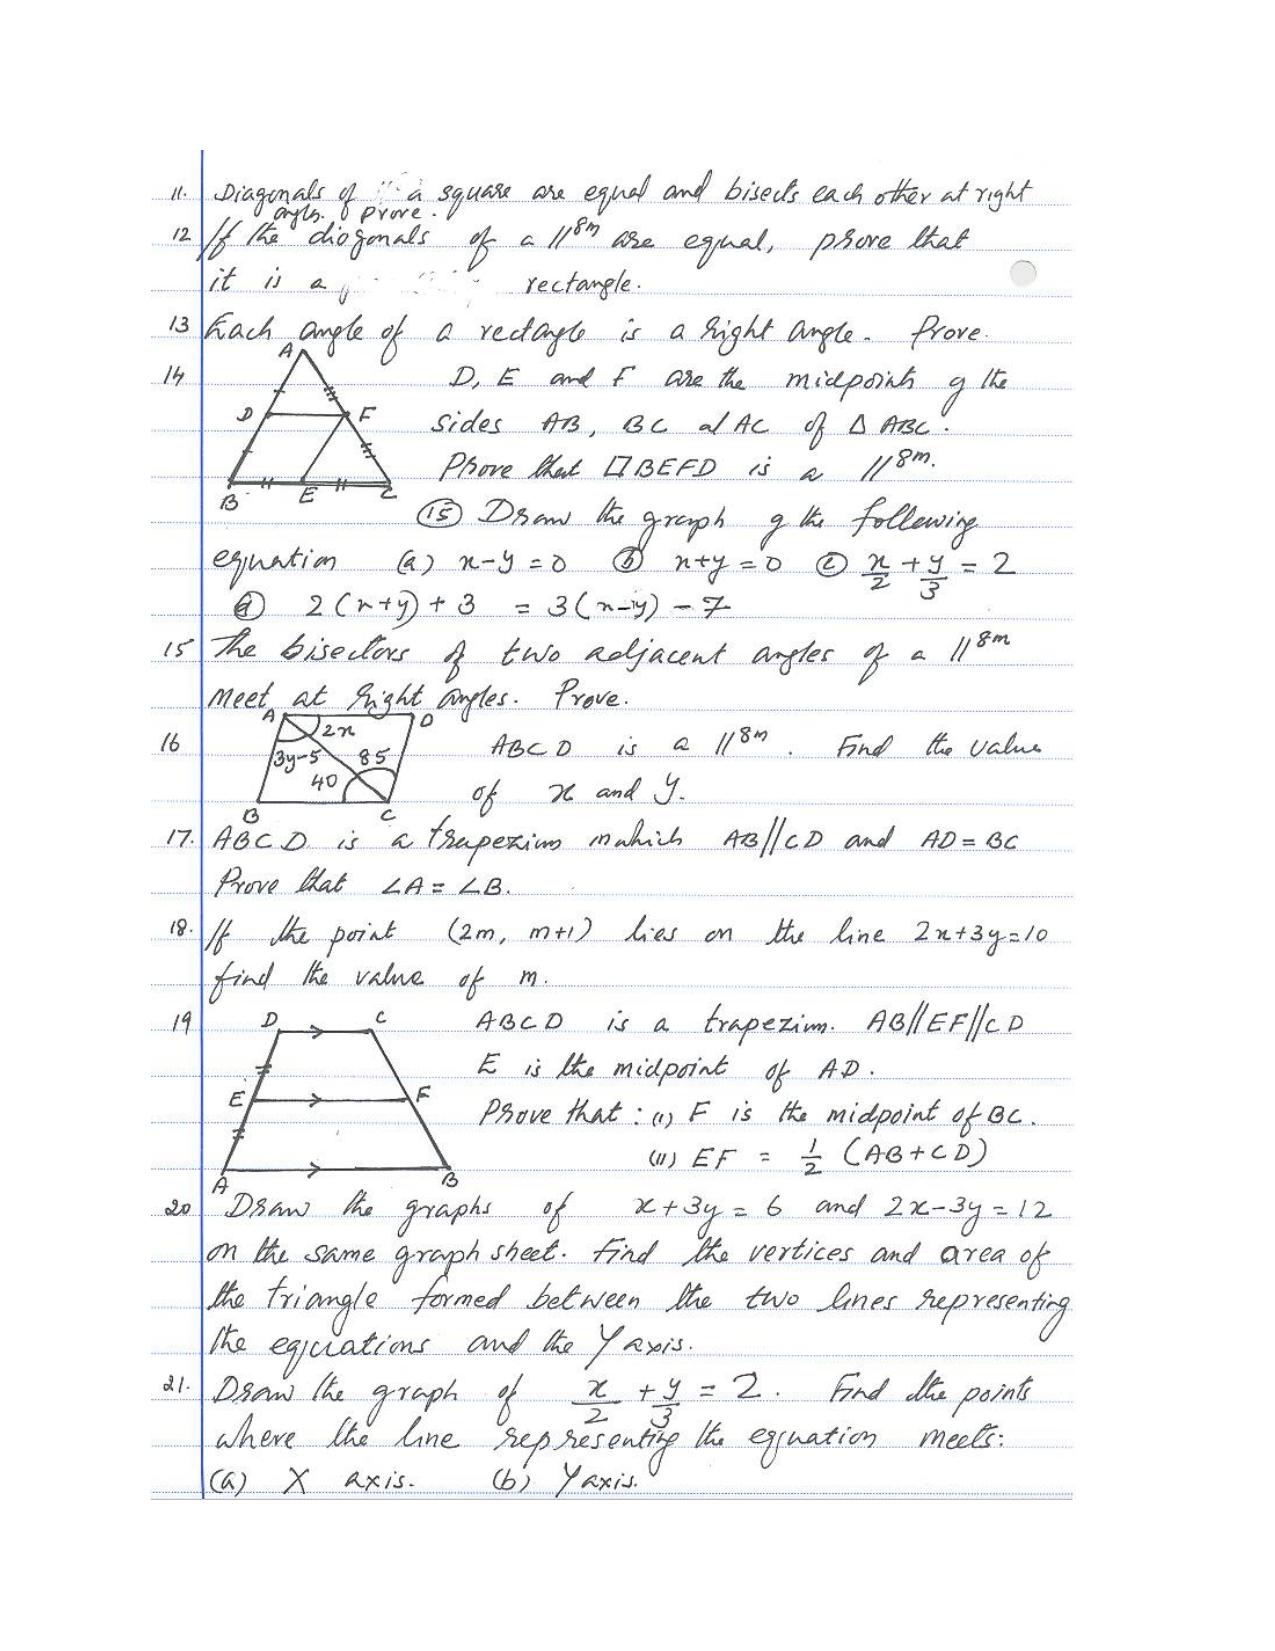 11. Diagonals of a square are equal and bisects each other at right
angles. prove.
12 If the diogonals of a ||gm are equal, prove that
it is a rectangle.
13 Each angle of a rectangle is a right angle. Prove.
14 D, E and F are the midpoints of the
sides AB, BC and AC of Δ ABC.
Prove that ▱BEFD is a ||gm.
A
D F
B E C
⑮ Draw the graph of the following
equation (a) x-y=0 ⓑ x+y=0 ⓒ x/2 + y/3 = 2
ⓓ 2(x+y)+3 = 3(x-y)-7
15 The bisectors of two adjacent angles of a ||gm
meet at right angles. Prove.
16 ABCD is a ||gm. Find the value
of x and y.
A D
2x
3y-5 85
40
B C
17. ABCD is a trapezium in which AB||CD and AD=BC
Prove that ∠A=∠B.
18. If the point (2m, m+1) lies on the line 2x+3y=10
find the value of m.
19 ABCD is a trapezim. AB||EF||CD
E is the midpoint of AD.
Prove that: (i) F is the midpoint of BC.
(ii) EF = 1/2 (AB+CD)
D C
E F
A B
20 Draw the graphs of x+3y=6 and 2x-3y=12
on the same graph sheet. Find the vertices and area of
the triangle formed between the two lines representing
the equations and the Y axis.
21. Draw the graph of x/2 + y/3 = 2. Find the points
where the line representing the equation meets:
(a) X axis. (b) Y axis.